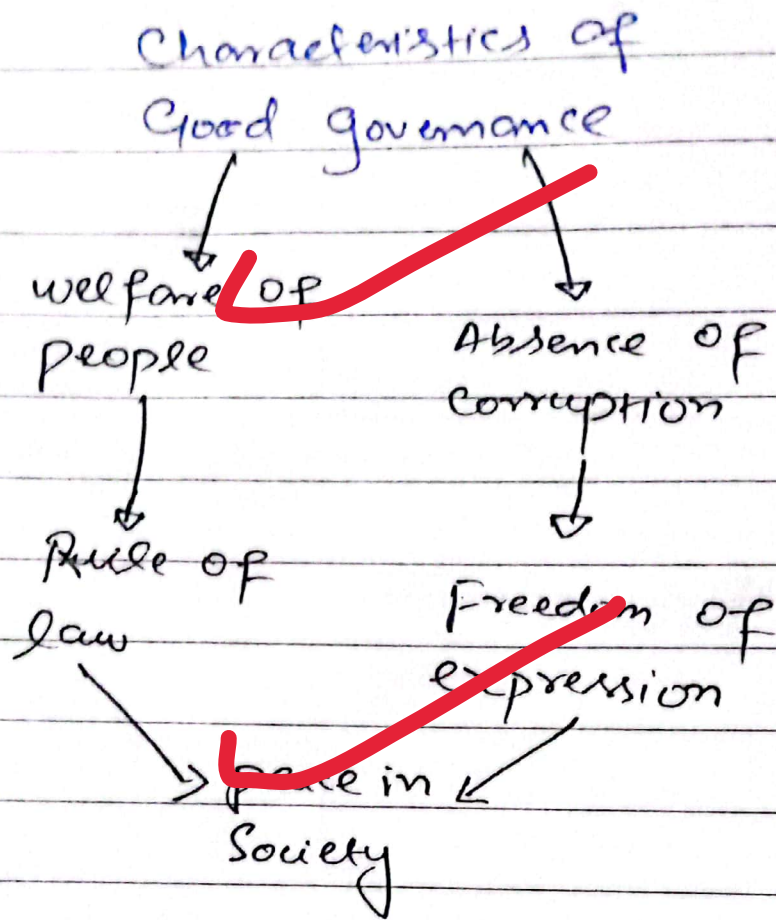 Characteristics of
Good governance
welfare of
people
Absence of
corruption
Rule of
law
Freedom of
expression
peace in
Society